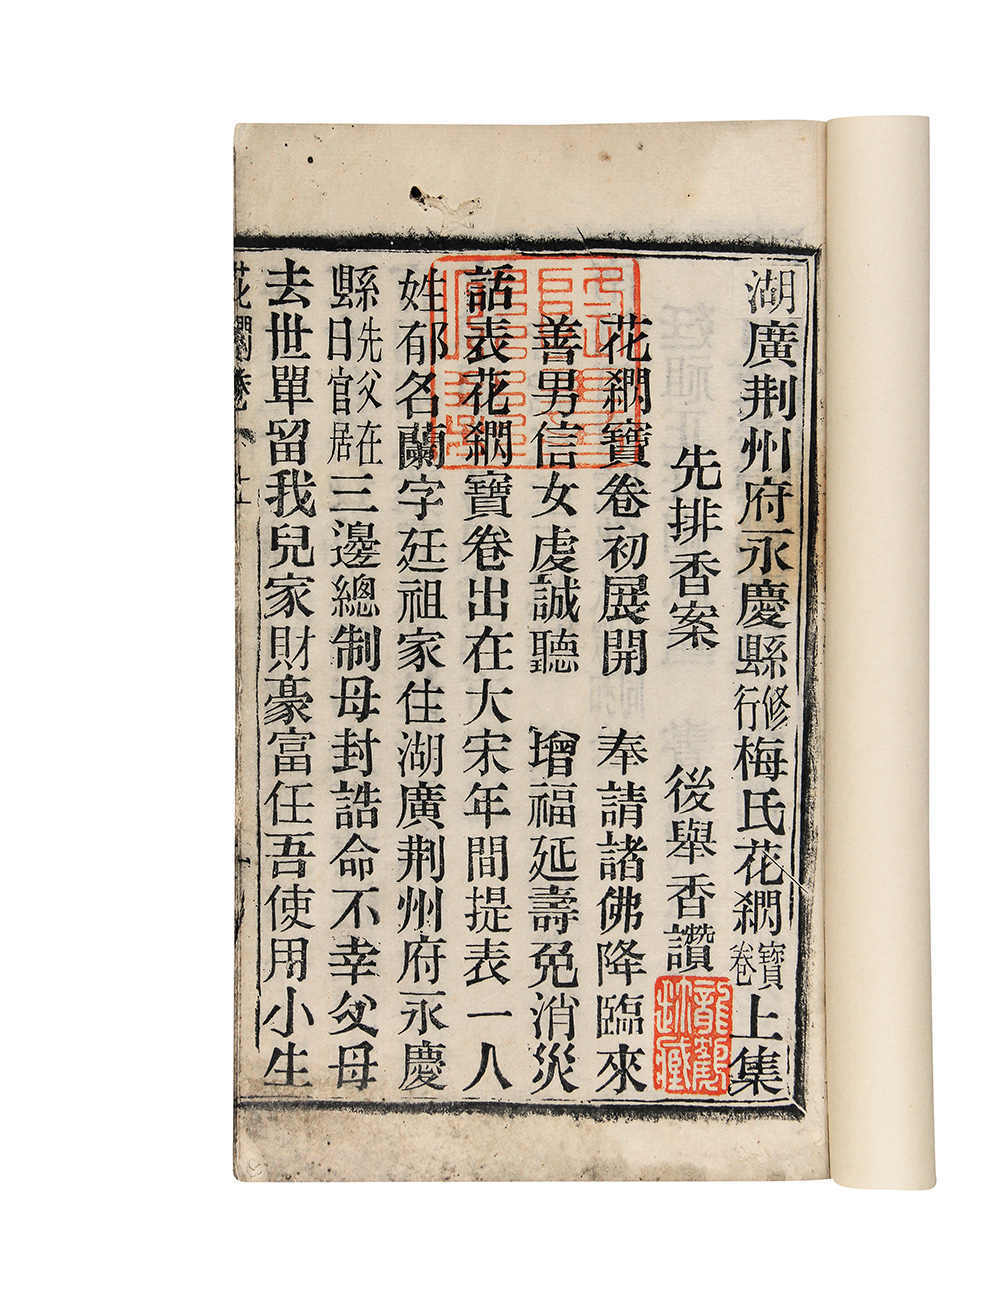 湖廣荆州府永慶縣修行梅氏花㵎寶卷上集
先排香案　後舉香讚
花㵎寶卷初展開　奉請諸佛降臨來
善男信女虔誠聽　增福延壽免消災
話表花㵎寶卷出在大宋年間提表一人
姓郁名蘭字廷祖家住湖廣荆州府永慶
縣先父在日官居三邊總制母封誥命不幸父母
去世單留我兒家財豪富任吾使用小生